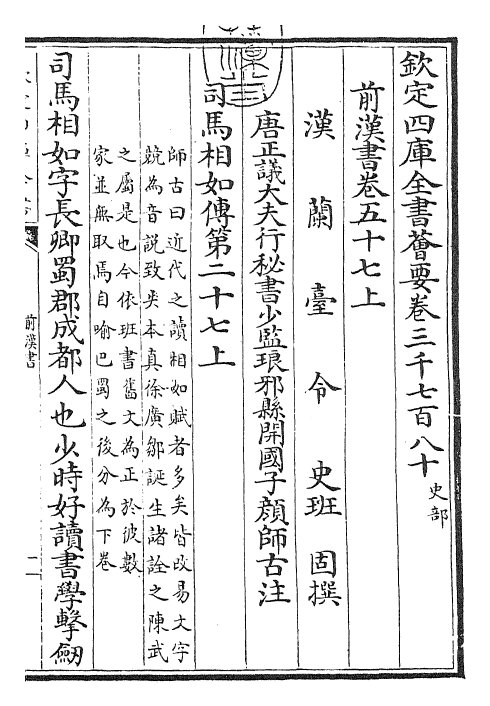 欽定四庫全書薈要卷三千七百八十 史部
前漢書卷五十七上
漢蘭臺令史班固撰
唐正議大夫行秘書少監琅邪縣開國子顔師古注
司馬相如傳第二十七上
師古曰近代之讀相如賦者多矣皆改易文字
競為音説致失本真徐廣鄒誕生諸詮之陳武
之屬是也今依班書舊文為正於彼數
家並無取焉自喻巴蜀之後分為下卷
司馬相如字長卿蜀郡成都人也少時好讀書學擊劒
前漢書
一